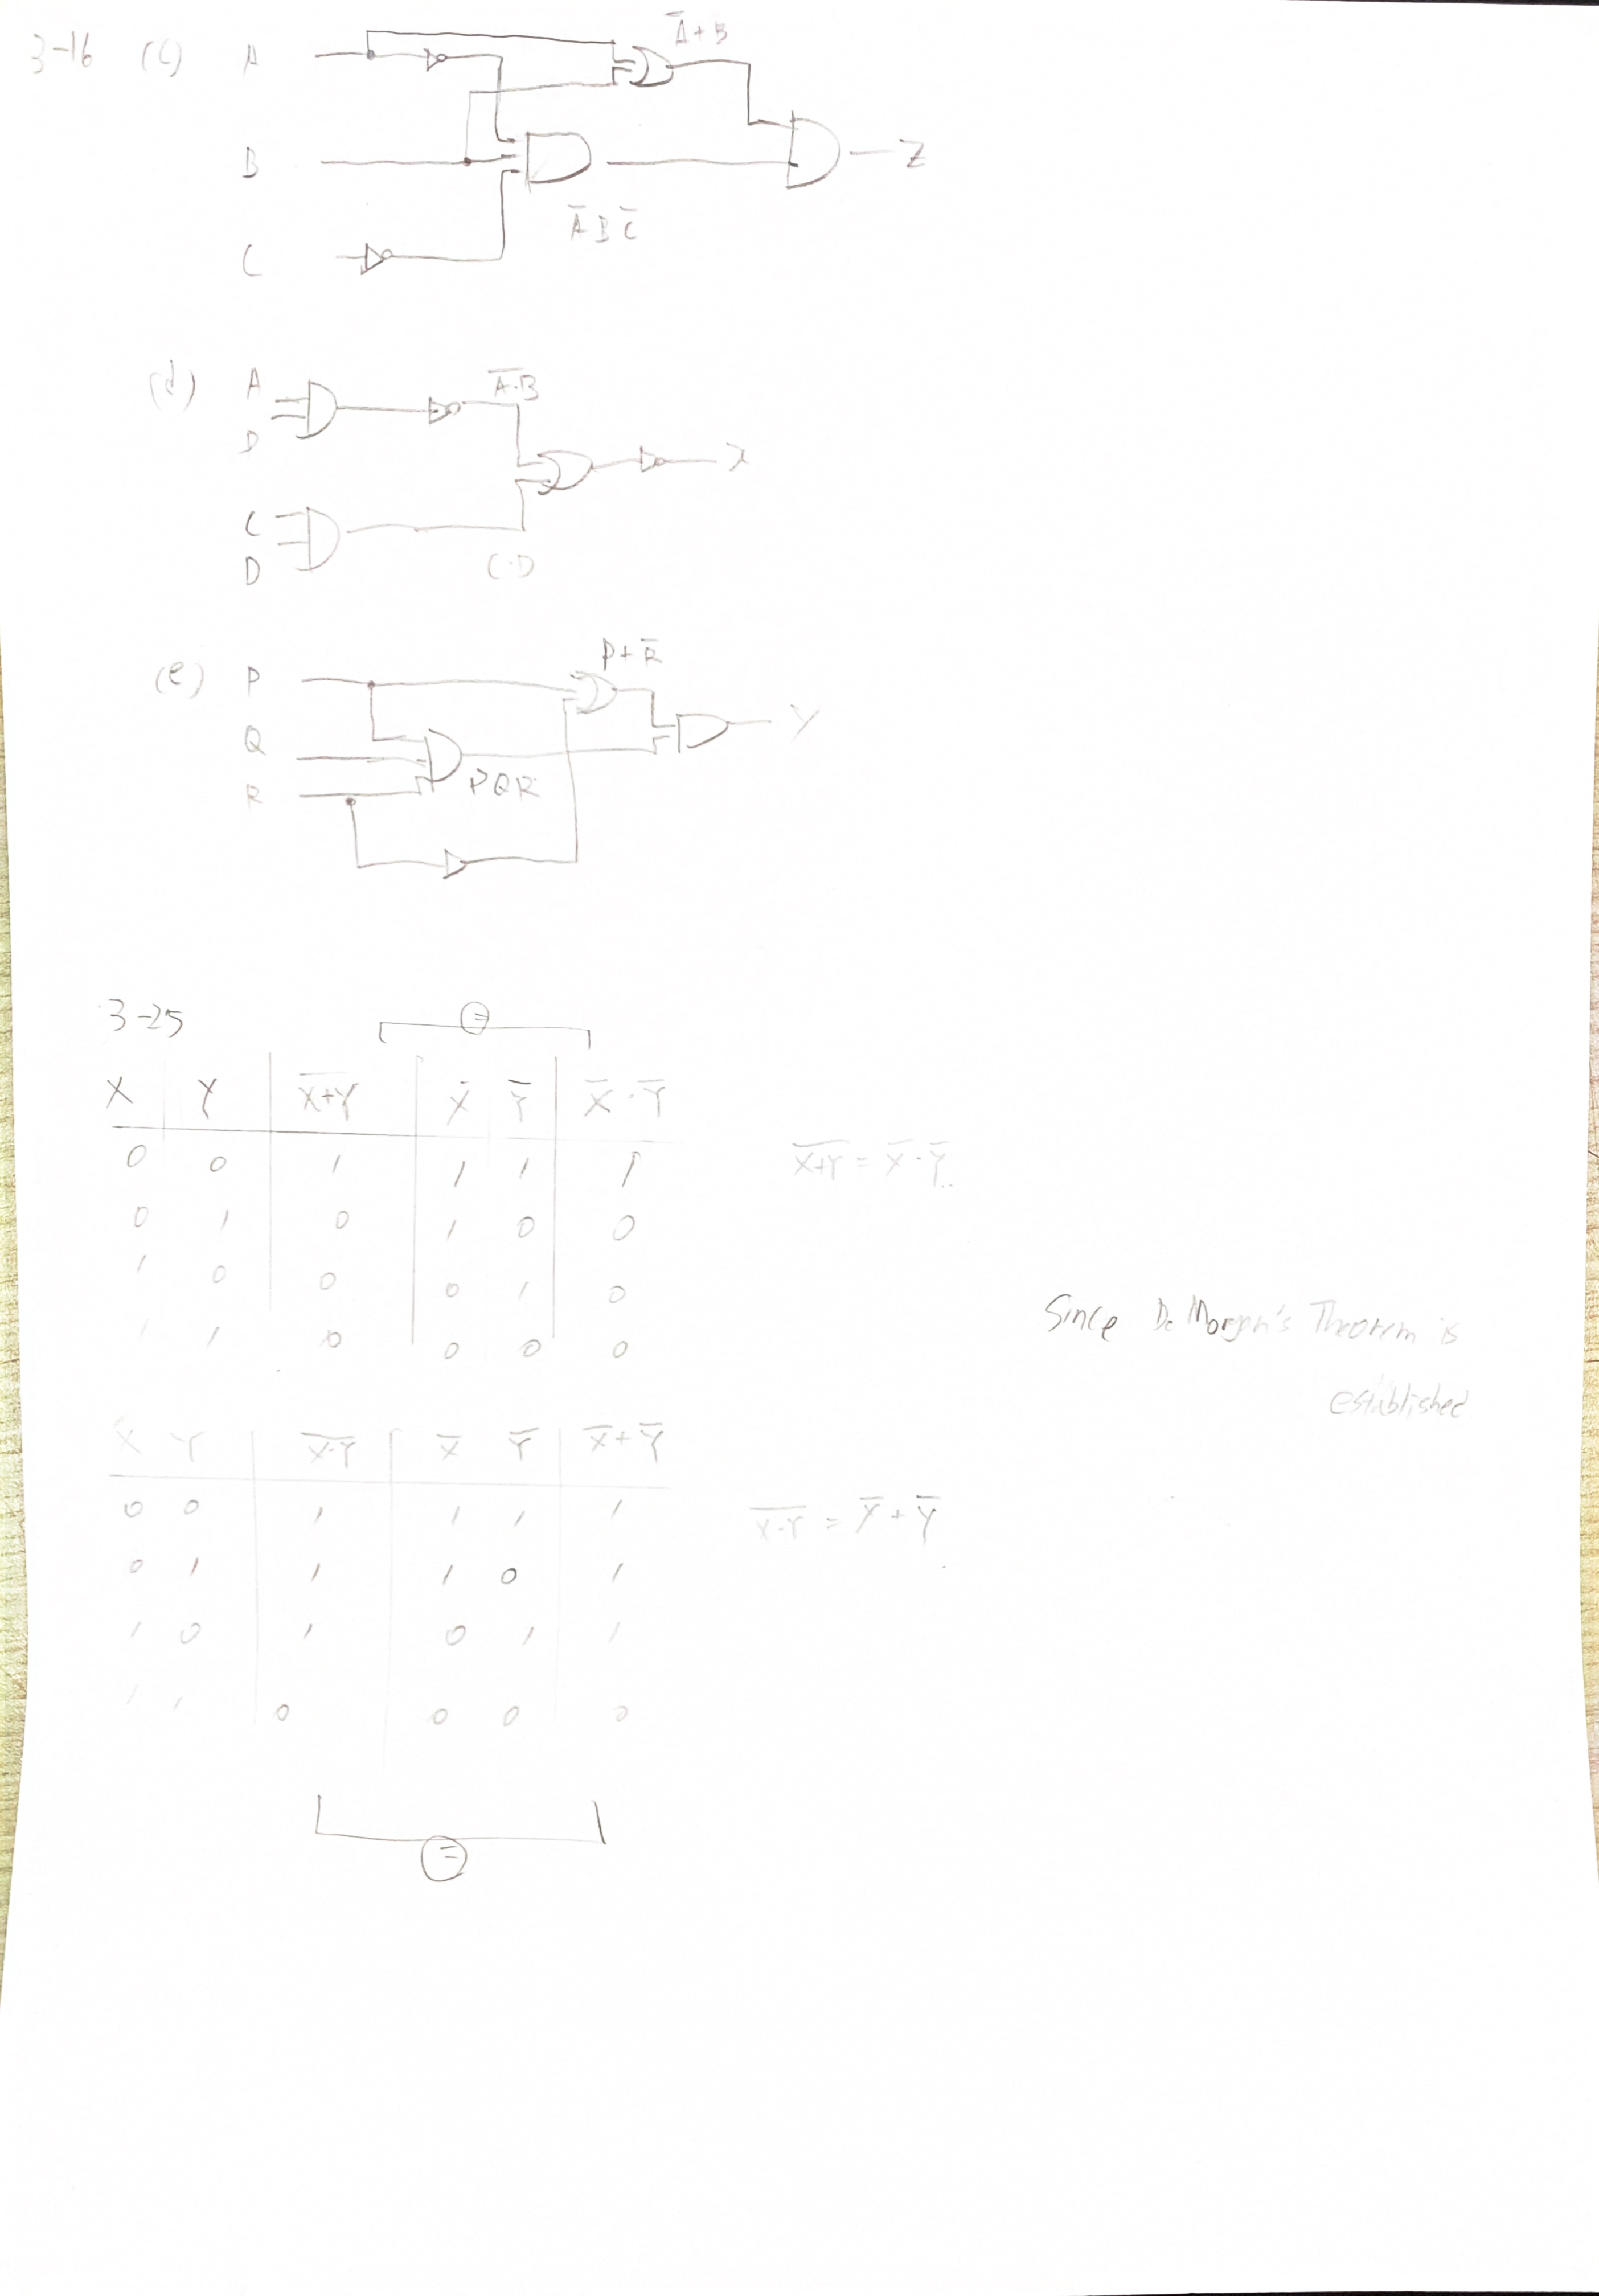 3-16 (C) A
A̅+B
B
Z
A̅BC̅
C
(d) A
D
A̅·B̅
X
C
D
C·D
(e) P
P+R̅
Q
Y
R
PQR
3-25
=
X Y X̅+̅Y̅ X̅ Y̅ X̅·Y̅
0 0 1 1 1 1
X̅+̅Y̅ = X̅·Y̅
0 1 0 1 0 0
1 0 0 0 1 0
1 1 0 0 0 0
Since De Morgan's Theorem is
established
X Y X̅·̅Y̅ X̅ Y̅ X̅+Y̅
0 0 1 1 1 1
X̅·̅Y̅ = X̅+Y̅
0 1 1 1 0 1
1 0 1 0 1 1
1 1 0 0 0 0
=